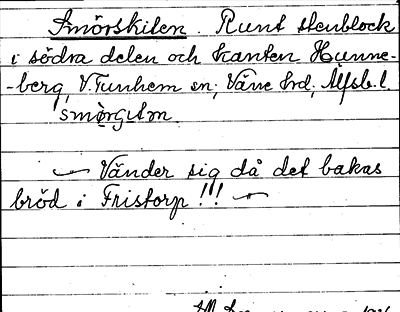 Smörskiten. Runt stenblock
i södra delen och kanten Hunne-
-berg, V. Tunhem sn, Väne hrd, Älfsb. l.
Vänder sig då det bakas
bröd i Fristorp!!!